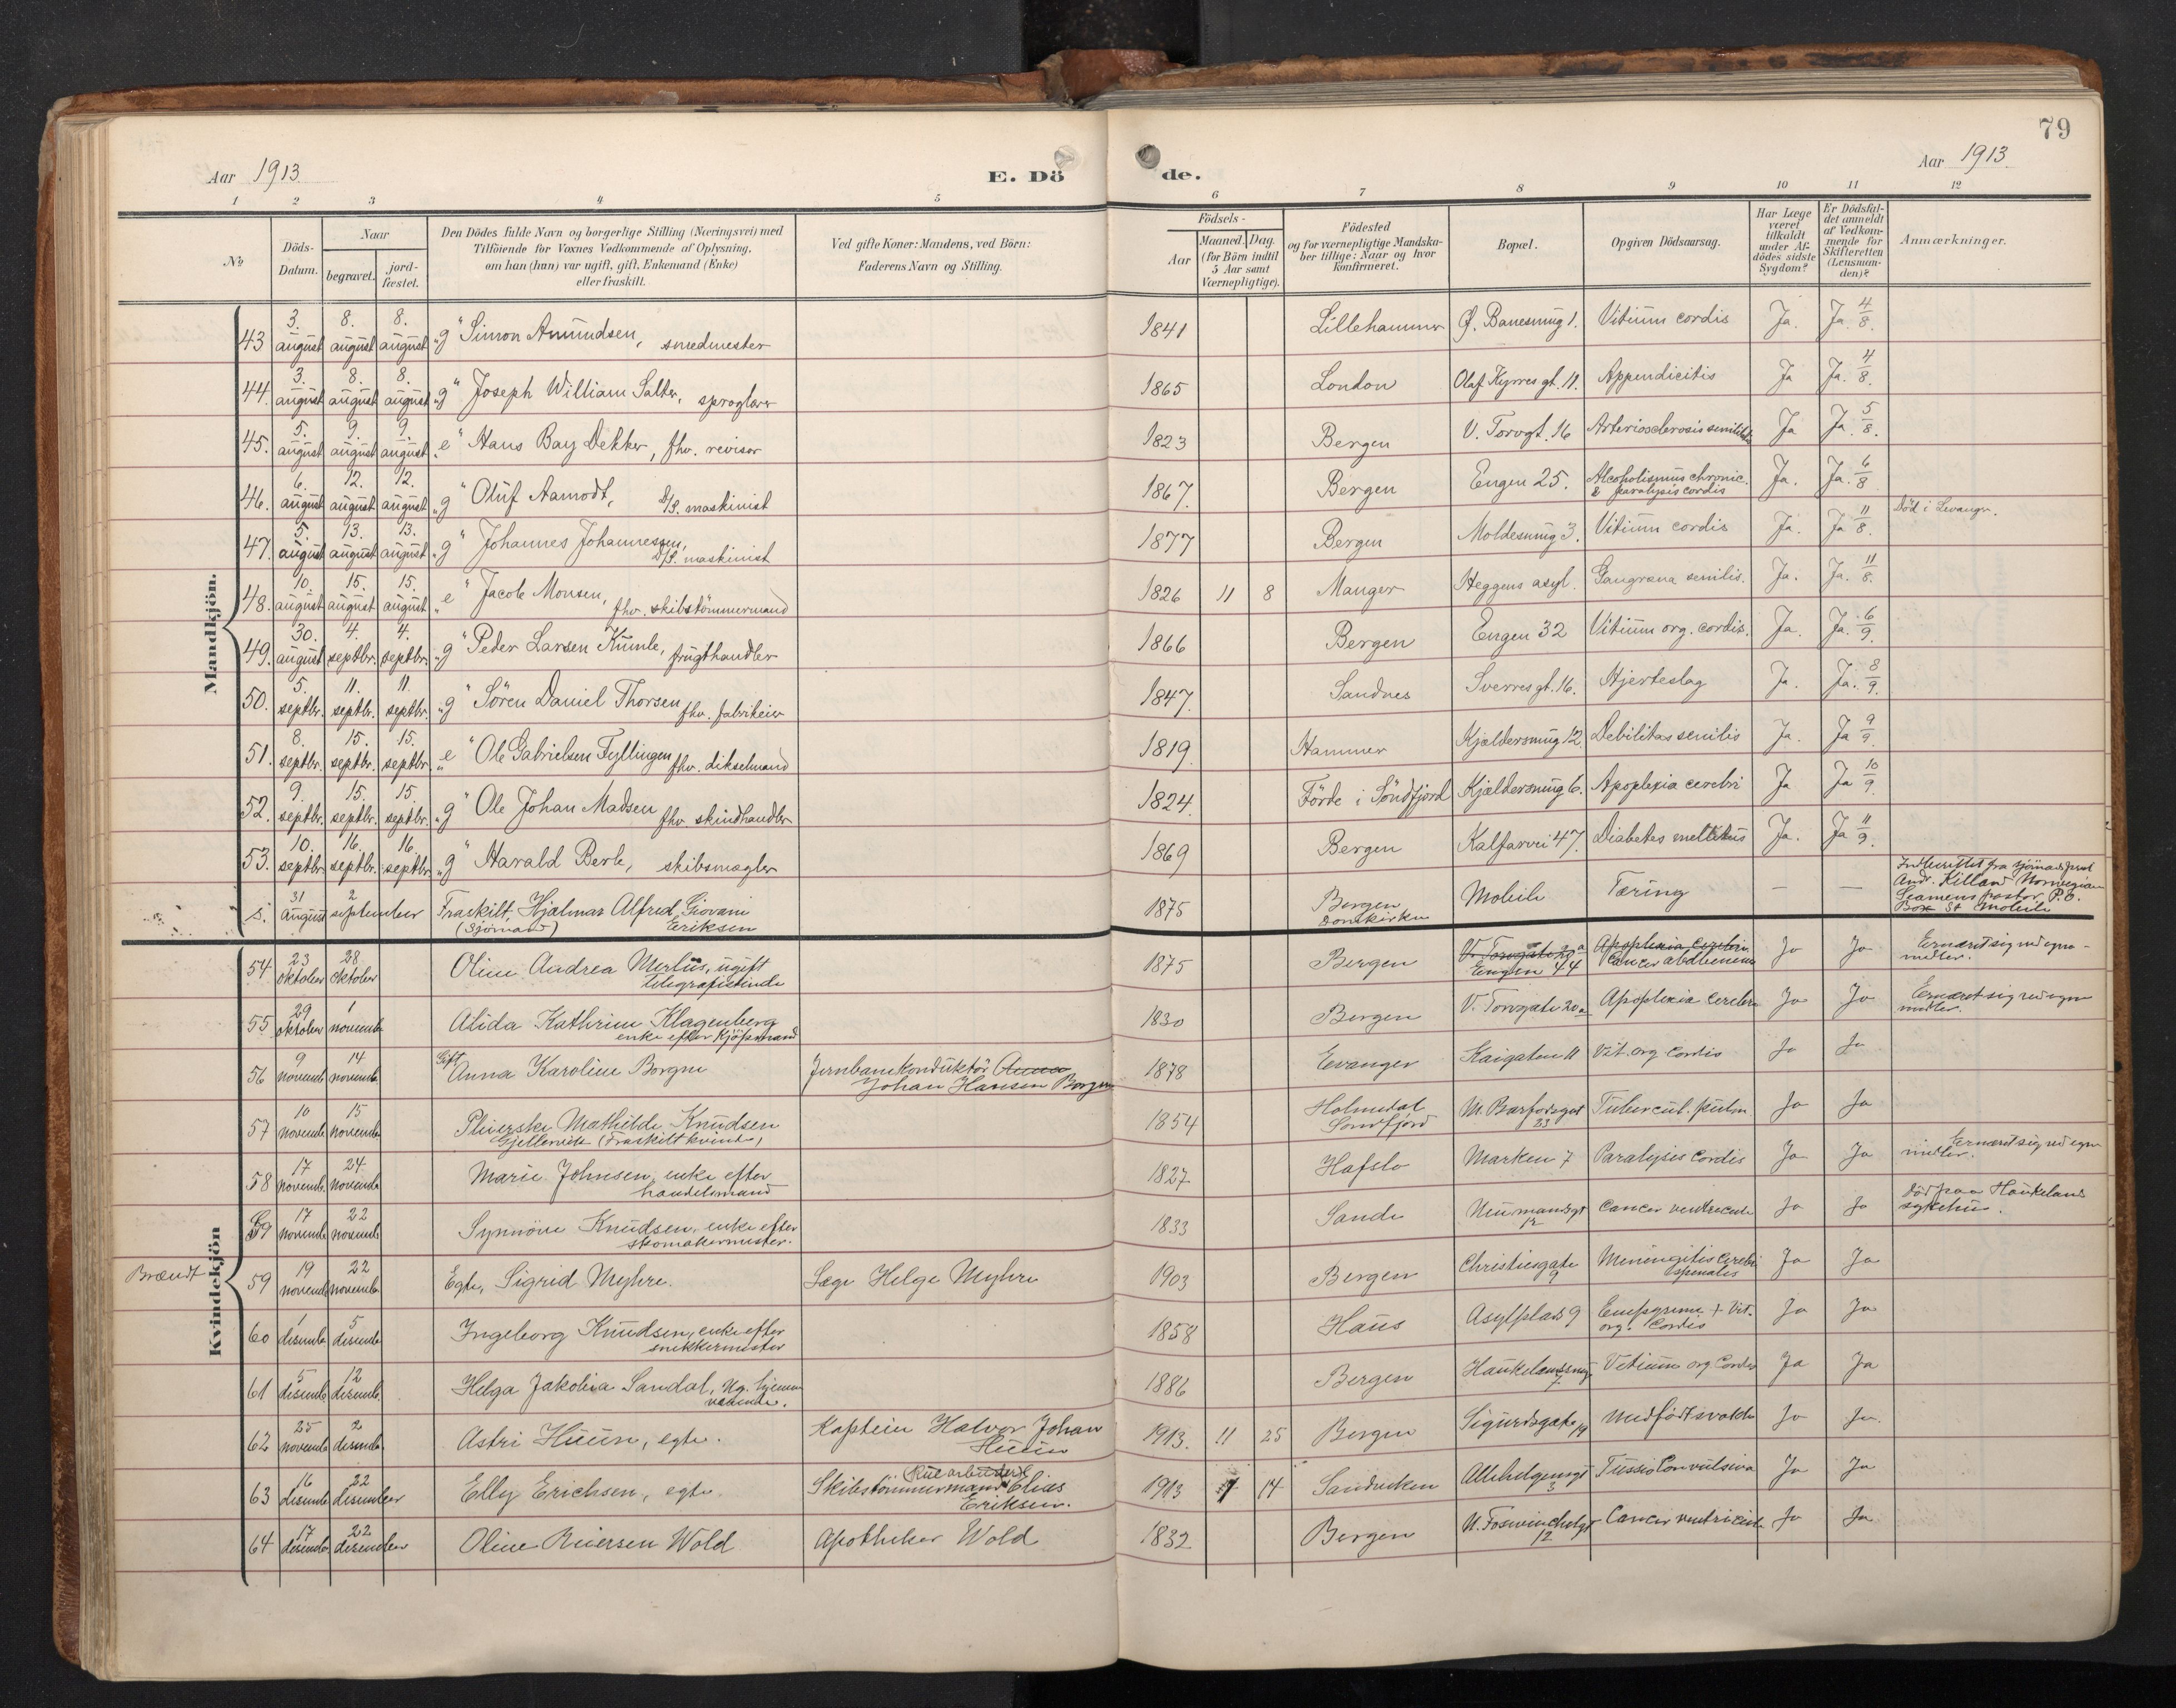 79
Aar 1913
E. Dö de.
Aar 1913
1 2 3 4 5 6 7 8 9 10 11 12
No
Döds-
Datum.
Naar
begravet.
jord-
fæstet.
Den Dödes fulde Navn og borgerlige Stilling (Næringsvei) med
Tilföiende for Voxnes Vedkommende af Oplysning,
om han (hun) var ugift, gift, Enkemand (Enke)
eller fraskilt.
Ved gifte Koner: Mandens, ved Börn:
Faderens Navn og Stilling.
Födsels-
Aar
Maaned. Dag.
(for Börn indtil
5 Aar samt
Værnepligtige).
Födested
og for værnepligtige Mandska-
ber tillige: Naar og hvor
konfirmeret.
Bopæl.
Opgiven Dödsaarsag.
Har Læge
været
tilkaldt
under Af-
dödes sidste
Sygdom?
Er Dödsfal-
det anmeldt
af Vedkom-
mende for
Skifteretten
(Lensman-
den)?
Anmærkninger.
Mandkjön.
43 3. august 8. august 8. august "g" Simon Amundsen, smedmester 1841 Lillehammer Ø. Banesmug 1. Vitium cordis Ja. Ja 4/8.
44. 3. august 8. august 8. august "g" Joseph William Salter, sproglærer 1865 London Olaf Kyrres gt. 11. Appendicitis Ja Ja. 4/8.
45. 5. august 9. august 9. august "e" Hans Bay Dekker, fhv. revisor 1823 Bergen V. Torvgt. 16 Arteriosclerosis senilitas Ja Ja. 5/8.
46. 6. august 12. august 12. august "g" Oluf Aamodt, D/S. maskinist 1867. Bergen Engen 25. Alcoholismus chronic. & paralysis cordis Ja. Ja. 6/8
47. 5. august 13. august 13. august "g" Johannes Johannessen, D/S. maskinist 1877 Bergen Moldesmug 3. Vitium cordis Ja. Ja 11/8. Död i Levanger.
48. 10. august 15. august 15. august "e" Jacob Monsen, fhv. skibstömmermand 1826 11 8 Manger Heggens asyl. Gangræna senilis. Ja. Ja. 11/8.
49. 30. august 4. septbr. 4. septbr. "g" Peder Larsen Kumle, frugthandler 1866 Bergen Engen 32 Vitium org. cordis. Ja. Ja. 6/9.
50. 5. septbr. 11. septbr. 11. septbr. "g" Sören Daniel Thorsen fhv. fabrikeier 1847. Sandnes Sverresgt. 16. Hjerteslag Ja. Ja. 8/9.
51. 8. septbr. 15. septbr. 15. septbr. "e" Ole Gabrielsen Fyllingen fhv. dikselmand 1819. Hammer Kjeldersmug 12. Debilitas senilis Ja. Ja 9/9.
52. 9. septbr. 15. septbr. 15. septbr. "g" Ole Johan Madsen fhv. skindhandler 1824. Förde i Söndfjord Kjældersmug 6. Apoplexia cerebri Ja Ja 10/9.
53. 10. septbr. 16. septbr. 16. septbr. "g" Harald Berle, skibsmægler 1869 Bergen Kalfarvei 47. Diabetes mellitus Ja. Ja 11/9.
s. 31 august 2 september Fraskilt, Hjalmar Alfred Giovani Eriksen (Sjömand) 1875 Bergen Domkirken Mobile Tæring — — Indberettet fra sjömandsprest Andr. Killand Norwegian Seamens pastor, P.O. Box 54 Mobile
Kvindekjön
54 23 oktober 28 oktober Oline Andrea Mertins, ugift telegrafistinde 1875 Bergen V. Torvgate 20a Engen 44 Apoplexia cerebri Cancer abdomenis Ja Ja Ernæret sig ved egne midler.
55 29 oktober 1 novemb. Alida Kathrine Klagenberg enke efter Kjöpmand 1830 Bergen V. Torvgate 20a Apoplexia cerebri Ja Ja Ernæret sig ved egne midler.
56 9 novemb. 14 novemb. Gift Anna Karoline Borgen Jernbanekonduktör Anna Johan Hansen Borgen 1878 Evanger Kaigaten 11 Vit. org cordis Ja Ja
57 10 novemb. 15 novemb. Pleierske Mathilde Knudsen Gjellevik (Fraskilt kvinde) 1854 Holmedal Söndfjord M. Barfodsgt 23 Tubercul. pulm. Ja Ja
58 17 novemb. 24 novemb. Marie Johnsen, enke efter handelsmand 1827 Hafslo Marken 7 Paralysis cordis Ja Ja Ernæret sig ved egne midler.
59 17 novemb. 22 novemb. Synnöve Knudsen, enke efter skomakermester. 1833 Sande Neumandsgt 12 Cancer ventriculi Ja Ja död paa Haukeland sykehus.
Brændt 59 19 novemb. 22 novemb. Egte, Sigrid Myhre. Læge Helge Myhre 1903 Bergen Christiesgate 9 Meningitis cerebri spinalis Ja Ja
60 1 desemb. 5 desemb. Ingeborg Knudsen, enke efter snekkermester 1858 Haus Asylplads 9 Empyeme + Vit. org. Cordis Ja Ja
61 5 desemb. 12 desemb. Helga Jakobea Sandal, Ug. hjemmeværende. 1886 Bergen Haukelandssmug 7. Vitium org Cordis Ja Ja
62 25 novemb. 2 desemb. Astri Huun, egte. Kaptein Halvor Johan Huun 1913. 11 25 Bergen Sigurdsgate 19 Medfödt svakhe Ja Ja.
63 16 desemb. 22 desember Elly Erichsen, egte. Skibstömmermand Elias Eriksen. 1913 14 Sandviken Allehelgensgt 3 Tussis Convulsiva Ja Ja
64 17 desemb. 22 desember Oline Reiersen Wold Apotheker Wold 1832 Bergen N. Foswinckelsgt 12 Cancer ventriculi Ja Ja